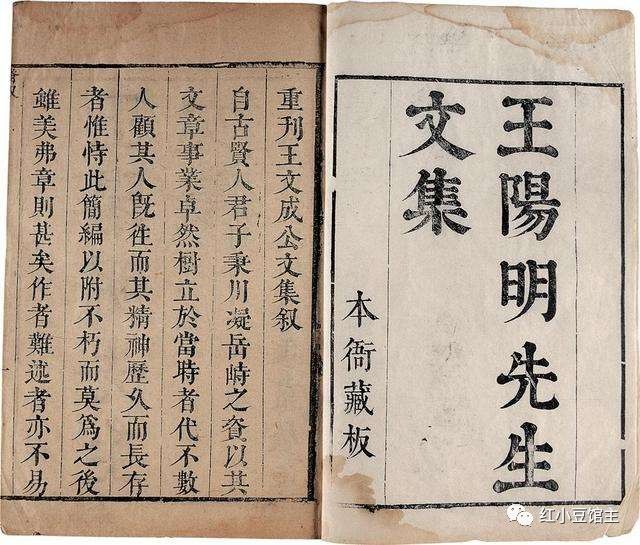 王陽明先生
文集
本衙藏板
重刊王文成公文集叙
自古賢人君子秉川凝岳峙之資以其
文章事業卓然樹立於當時者代不數
人顧其人旣徃而其精神歷久而長存
者惟恃此簡編以附不朽而莫爲之後
雖美弗章則甚矣作者難述者亦不易
红小豆馆主